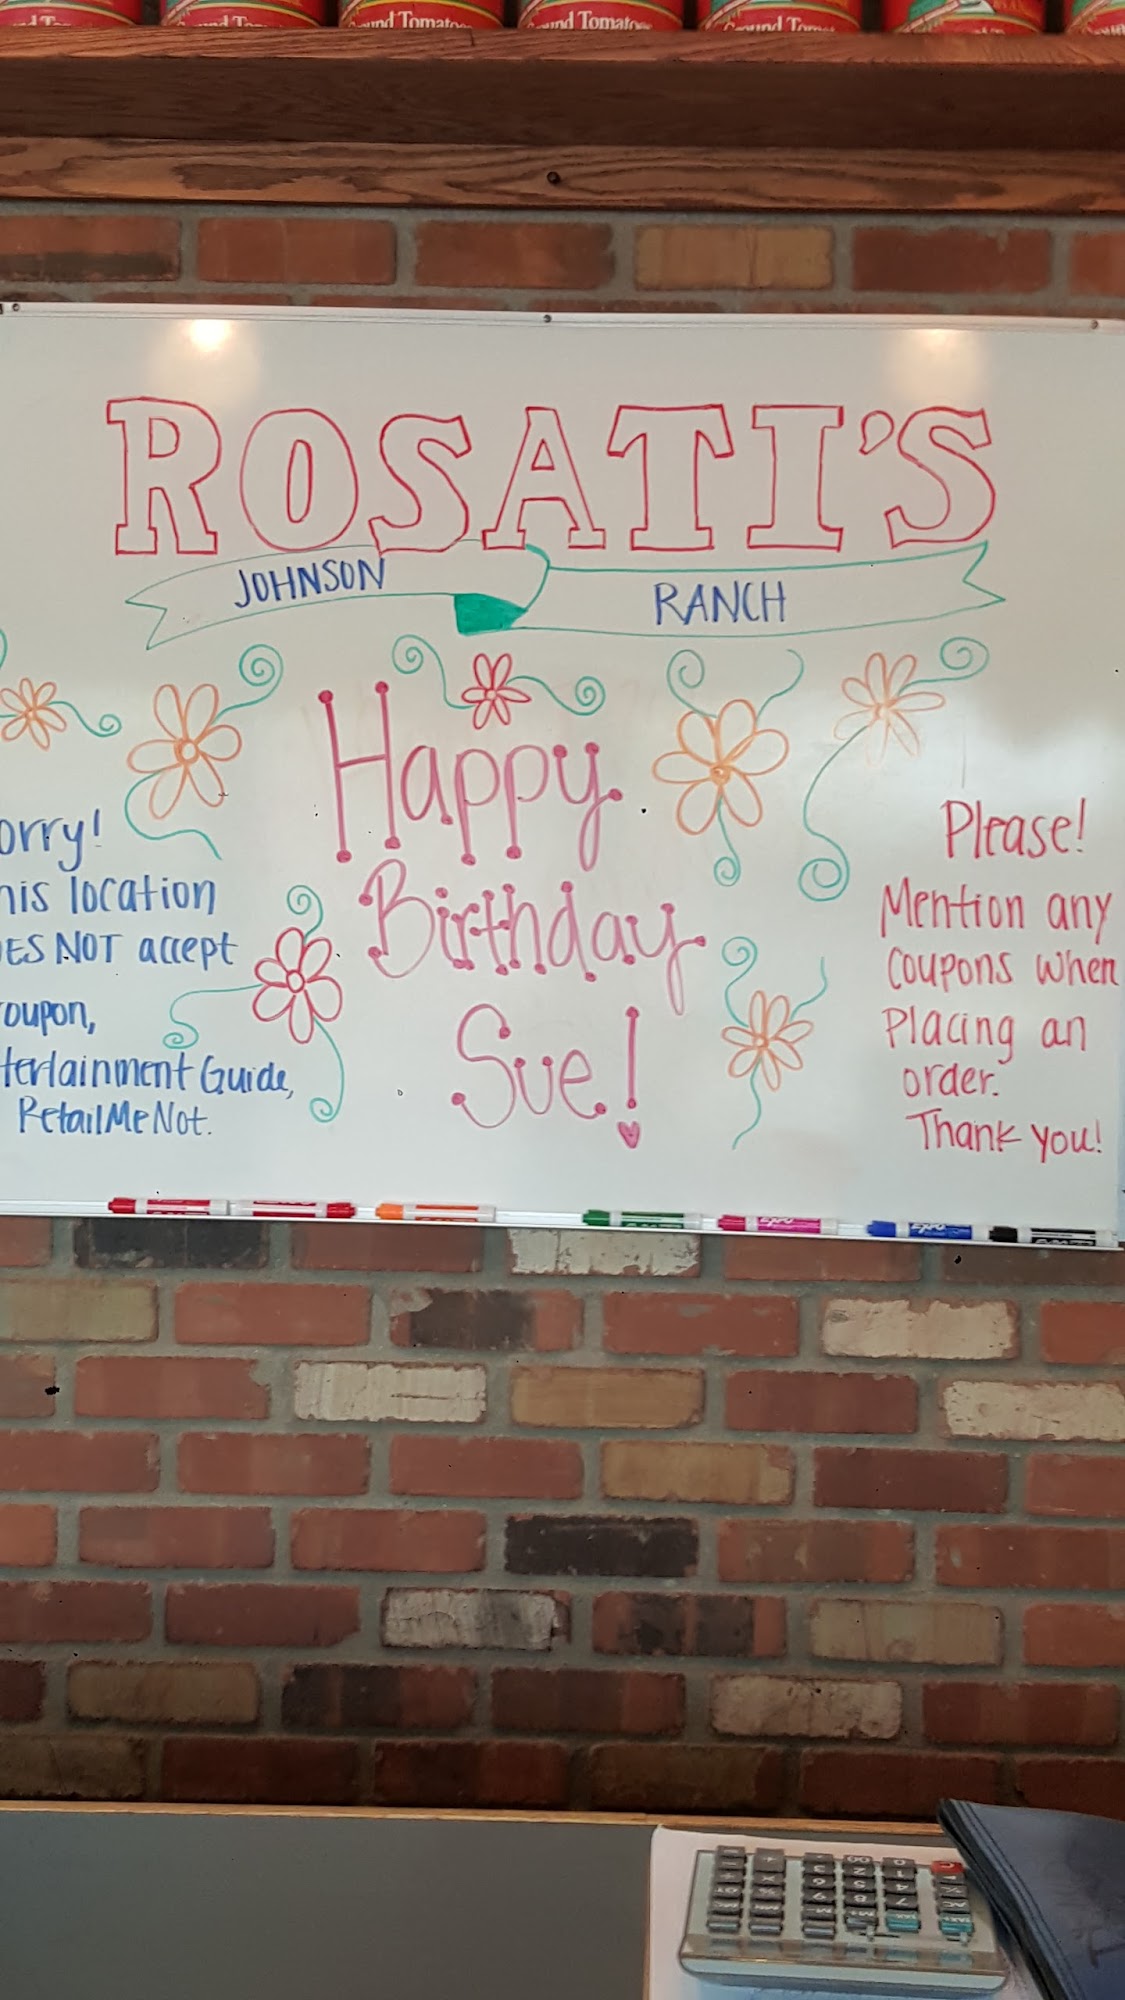 Ground Tomatoes
ROSATI'S
JOHNSON RANCH
Happy
Birthday
Sue!
orry!
his location
ES NOT accept
oupon,
tertainment Guide,
RetailMeNot.
Please!
Mention any
coupons when
Placing an
order.
Thank you!
EXPO
EXPO